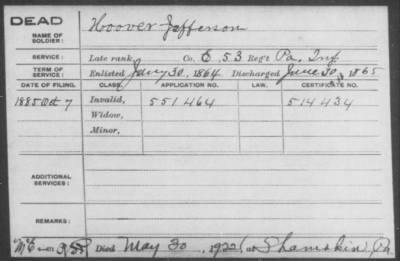 DEAD
NAME OF SOLDIER: Hoover Jefferson
SERVICE: Late rank Co. E, 53 Reg't Pa. Inf
TERM OF SERVICE: Enlisted Jan'y 30, 1864 Discharged June 30, 1865
DATE OF FILING. CLASS. APPLICATION NO. LAW. CERTIFICATE NO.
1885 Oct 7 Invalid, 551 464 514 434
Widow,
Minor,
ADDITIONAL SERVICES:
REMARKS:
Died May 30, 1922 at Shamokin, Pa.